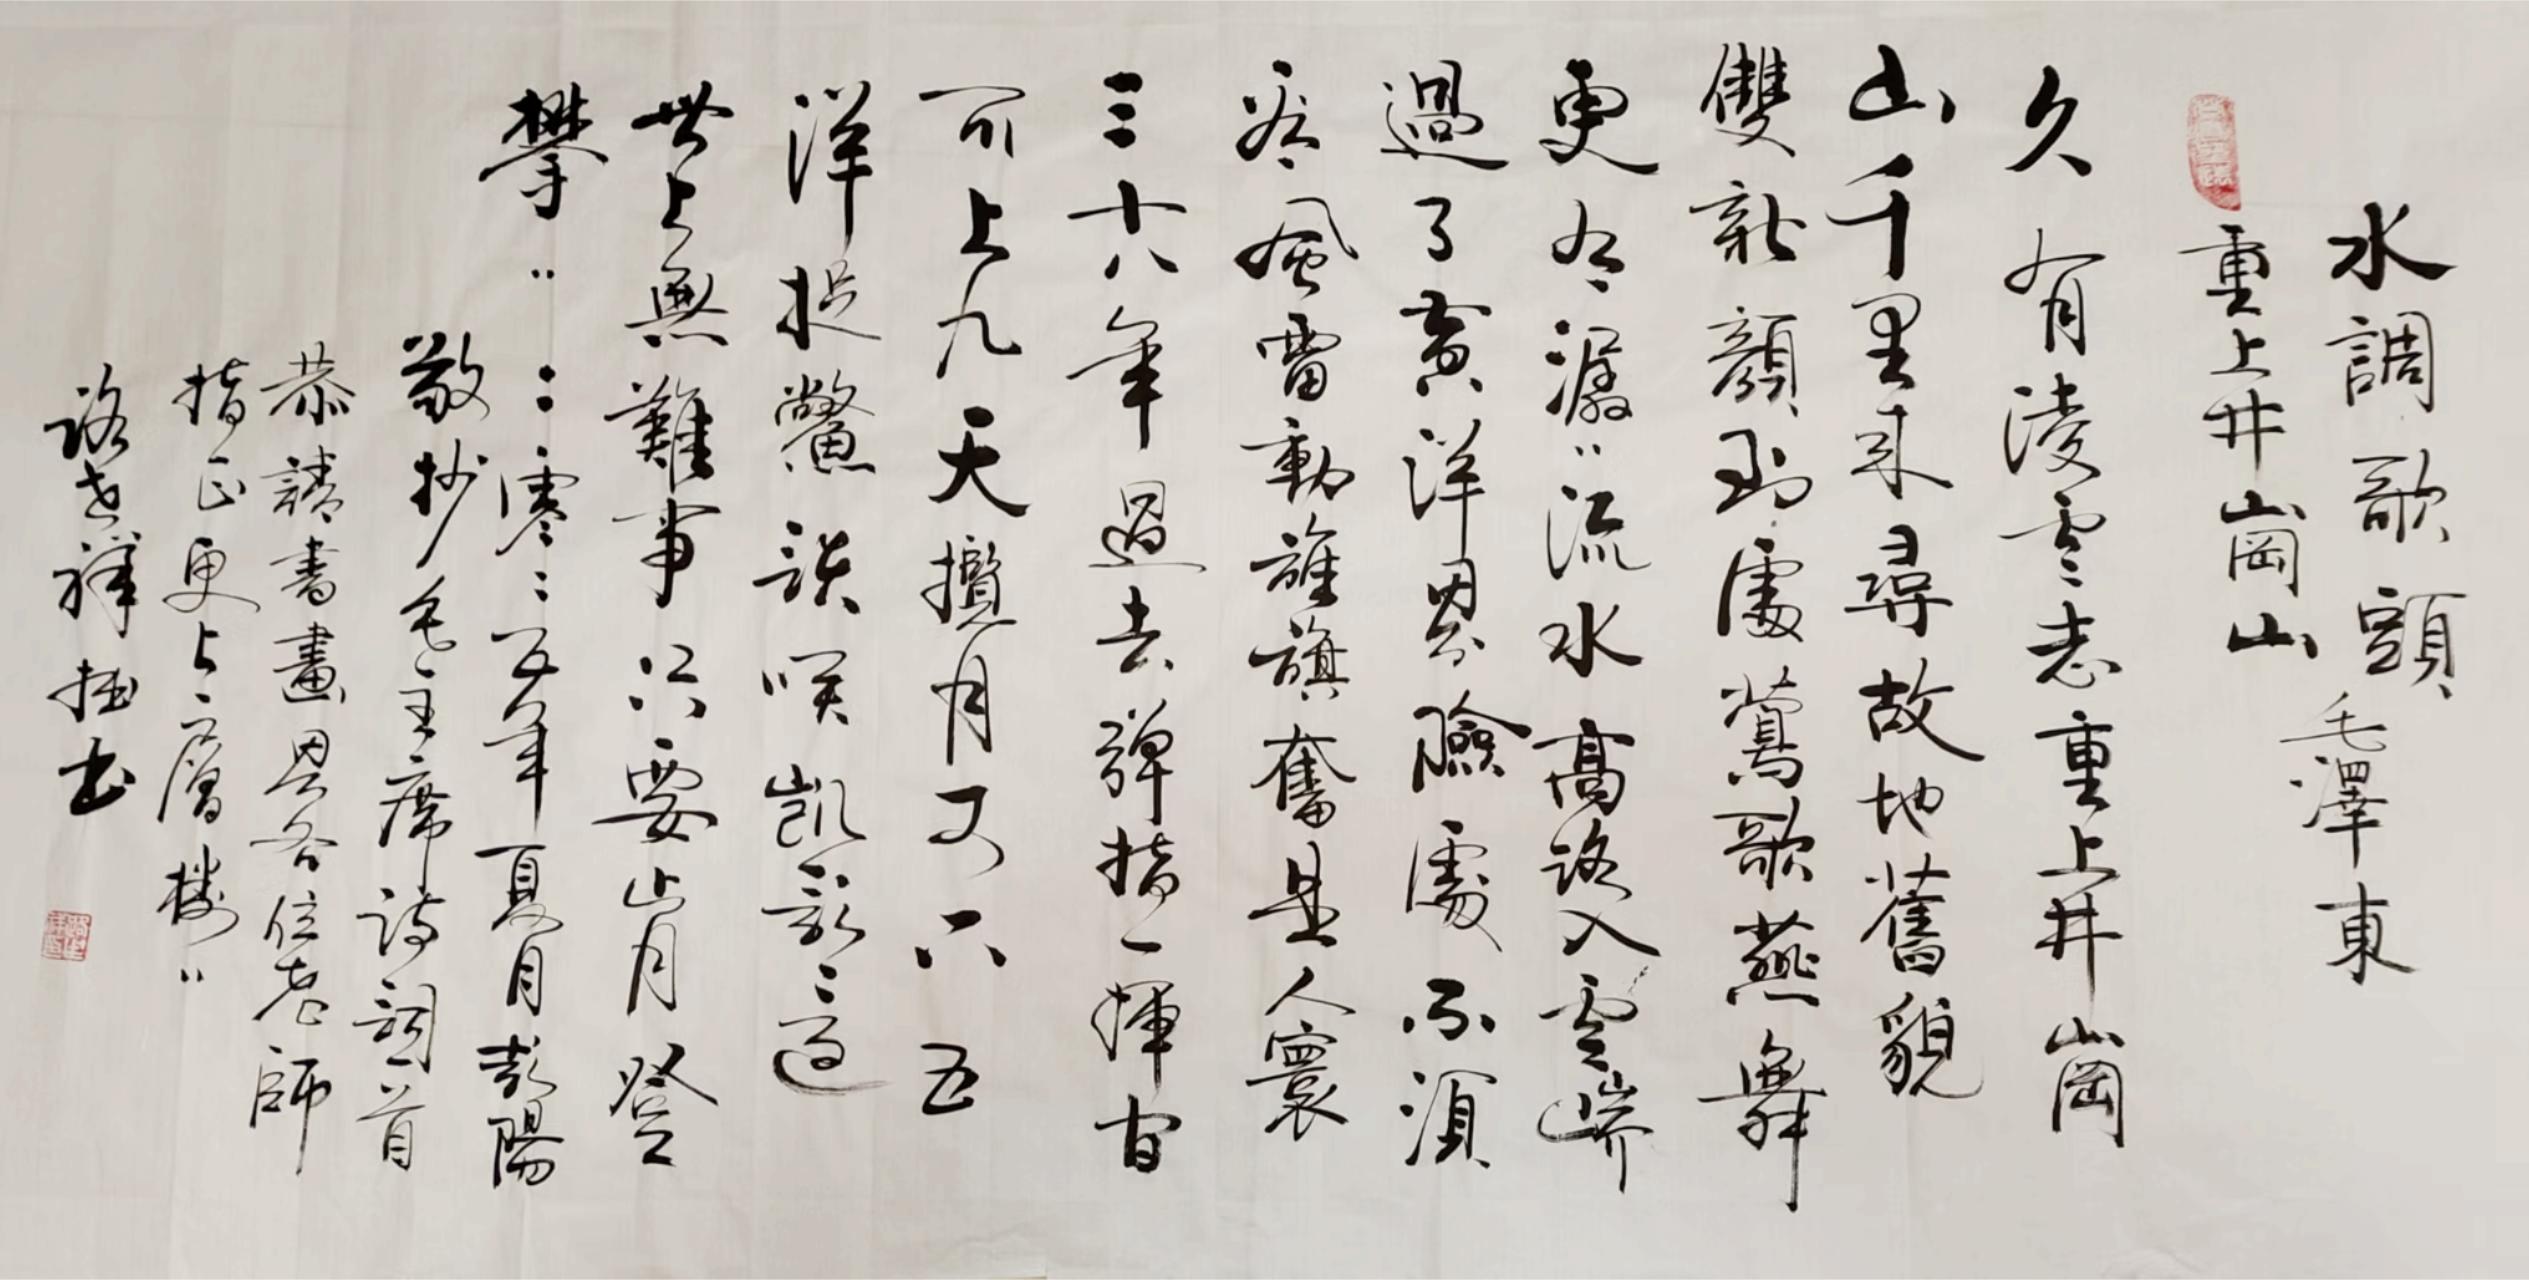 水調歌頭
重上井崗山
毛澤東
久有凌雲志重上井崗
山千里来尋故地舊貌
雙新顏到處鶯歌燕舞
更有潺〃流水高路入雲端
過了黃洋界險處不須
看風雷動旌旗奮是人寰
三十八年過去彈指一揮间
可上九天攬月可下五
洋捉鱉談笑凱歌還
世上無難事只要肯登
攀〃
二零二五年夏月彭陽
敬抄毛主席詩詞一首
恭請書畫界各位老師
指正更上一層樓〃
路志祥拙书